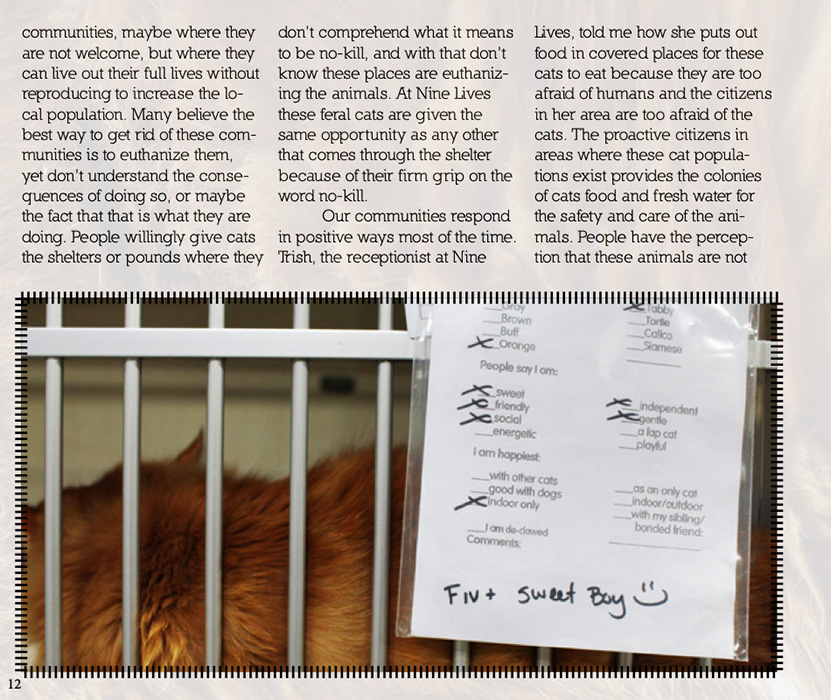 communities, maybe where they
are not welcome, but where they
can live out their full lives without
reproducing to increase the lo-
cal population. Many believe the
best way to get rid of these com-
munities is to euthanize them,
yet don't understand the conse-
quences of doing so, or maybe
the fact that that is what they are
doing. People willingly give cats
the shelters or pounds where they
don't comprehend what it means
to be no-kill, and with that don't
know these places are euthaniz-
ing the animals. At Nine Lives
these feral cats are given the
same opportunity as any other
that comes through the shelter
because of their firm grip on the
word no-kill.
Our communities respond
in positive ways most of the time.
Trish, the receptionist at Nine
Lives, told me how she puts out
food in covered places for these
cats to eat because they are too
afraid of humans and the citizens
in her area are too afraid of the
cats. The proactive citizens in
areas where these cat popula-
tions exist provides the colonies
of cats food and fresh water for
the safety and care of the ani-
mals. People have the percep-
tion that these animals are not
Gray
Brown
Buff
Orange
Tabby
Tortie
Calico
Siamese
People say I am:
sweet
friendly
social
energetic
independent
gentle
a lap cat
playful
I am happiest:
with other cats
good with dogs
indoor only
as an only cat
indoor/outdoor
with my sibling/
bonded friend:
I am de-clawed
Comments:
FIV+ Sweet Boy
12